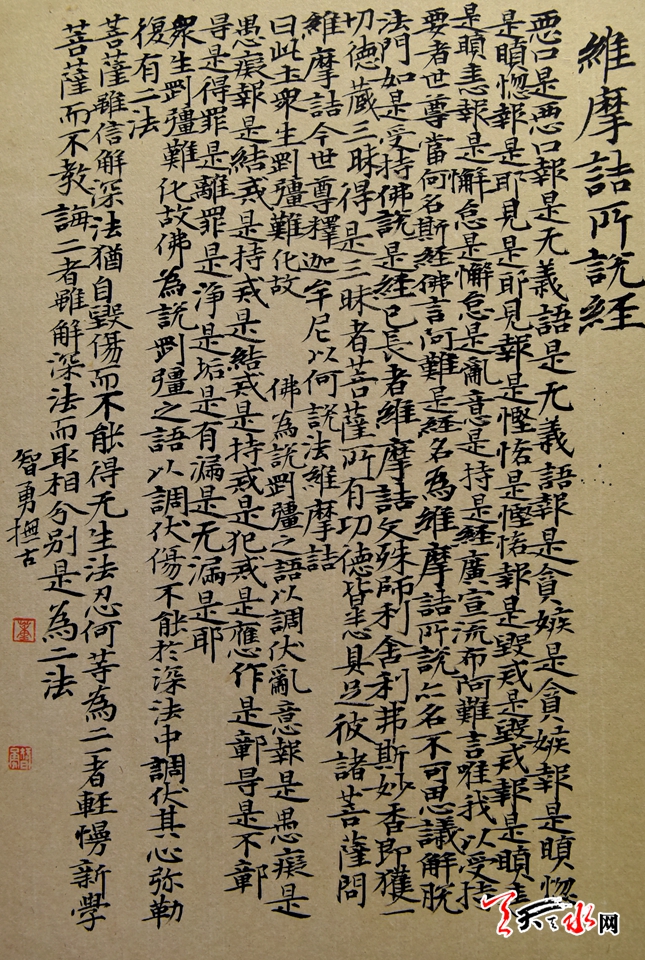 維摩詰所說經
惡口是惡口報是无義語是无義語報是貪嫉是貪嫉報是瞋惱
是瞋惱報是耶見是耶見報是慳悋是慳悋報是毀戒是毀戒報是瞋恚
是瞋恚報是懈怠是懈怠是亂意是持是經廣宣流布阿難言唯我以受持
要者世尊當何名斯經佛言阿難是經名為維摩詰所說亦名不可思議解脫
法門如是受持佛說是經已長者維摩詰文殊師利舍利弗斯妙香即獲一
切德藏三昧得是三昧者菩薩所有功德皆悉具足彼諸菩薩問
維摩詰今世尊釋迦牟尼以何說法維摩詰
曰此土衆生剛彊難化故 佛為說剛彊之語以調伏亂意報是愚癡是
愚癡報是結戒是持戒是結戒是持戒是犯戒是應作是鄣㝵是不鄣
㝵是得罪是離罪是淨是垢是有漏是无漏是耶
衆生剛彊難化故佛為說剛彊之語以調伏傷不能於深法中調伏其心弥勒
復有二法
菩薩雖信解深法猶自毀傷而不能得无生法忍何等為二一者輕慢新學
菩薩而不教誨二者雖解深法而取相分別是為二法
智勇撫古
天水网